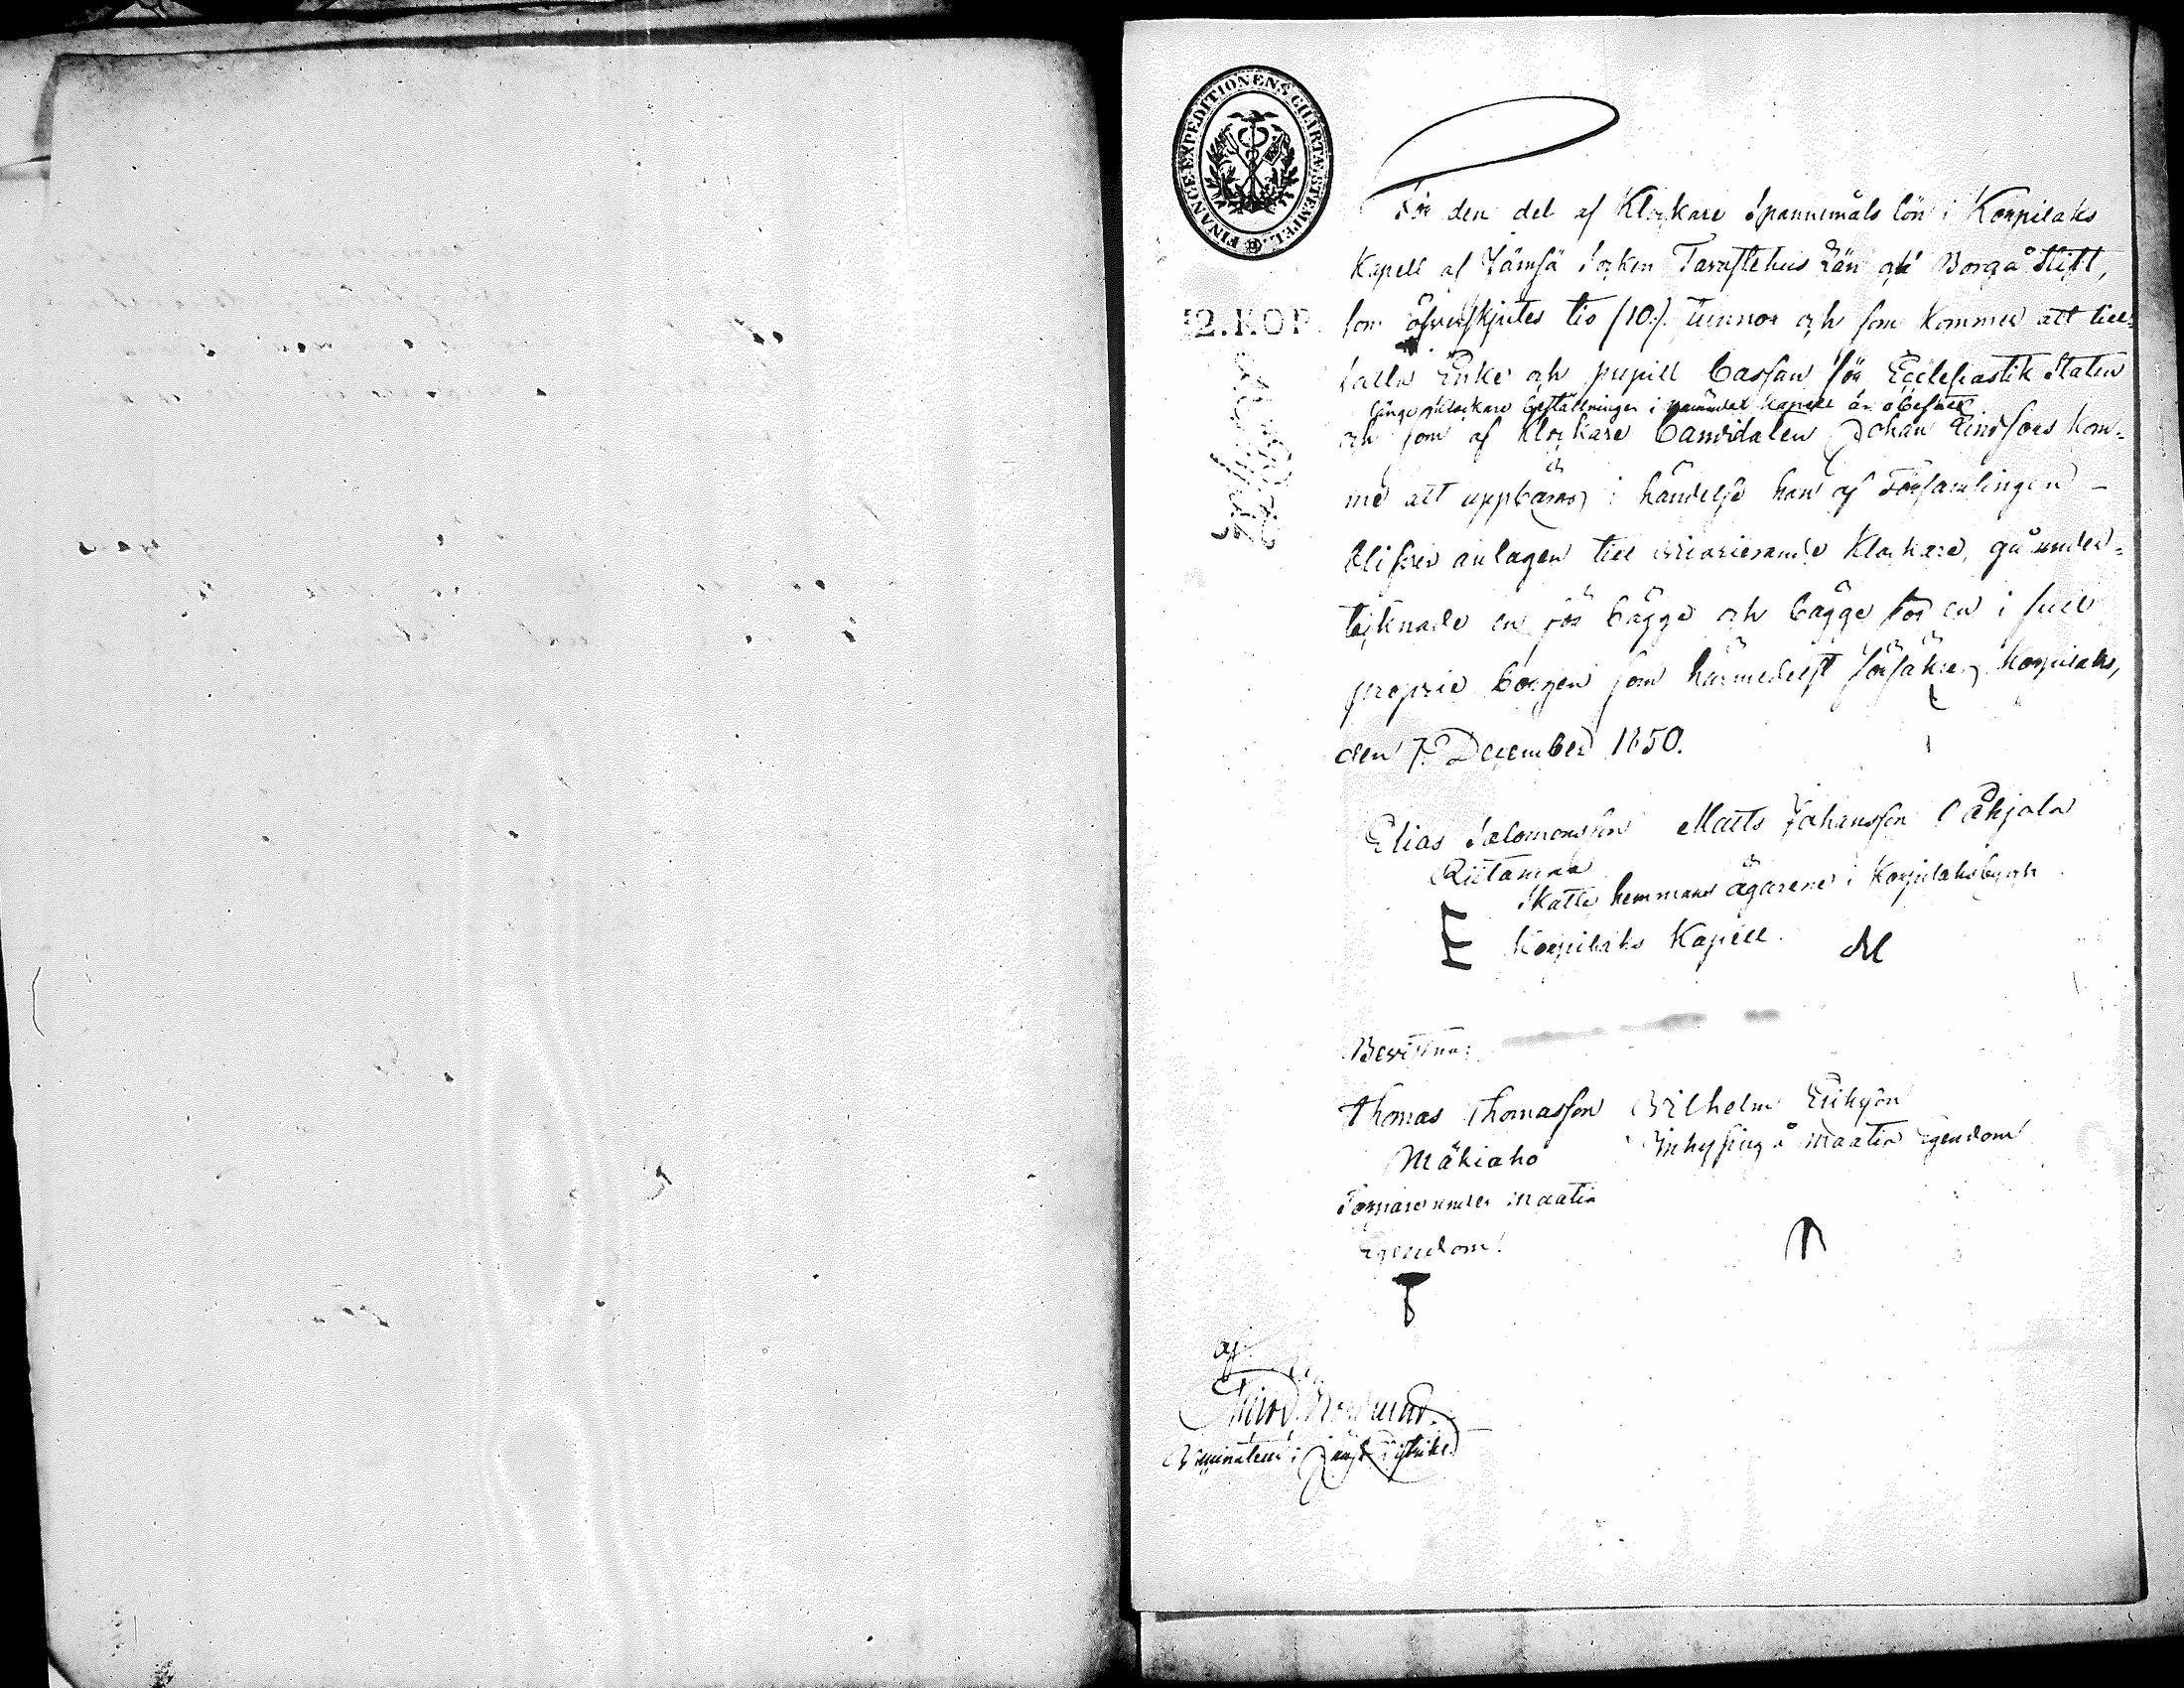 FINANCE-EXPEDITIONENS CHARTÆ-STEMPEL.
12. KOP.
För den del af Klockare Spannemåls lön i Korpilaks
Kapell af Jämsä Socken Tavastehus Län och Borgå Stift,
som öfverskjuter tio /10:/. tunnor och som kommer att till-
falla Enke och pupill Cassan för Ecclesiastik Staten
länge Klockare beställningen i nämnde Kapell är obesatt
och som af Klockare Candidaten Johan Lindfors kom-
me att uppbäras, i händelse han af Församlingen
blifver antagen till vicarierande Klockare, gå under-
tecknade en för bägge och bägge för en i full
proprie borgen som härmedelst försäkras, Korpilaks,
den 7. December 1850.
Elias Salomonsson Matts Johansson Påhjola
Riitamaa
Skatte hemmans ägarene i Korpilaksby och
Korpilaks Kapell.
E M
Bevittna:
Thomas Thomasson Wilhelm Eriksson
Mäkiaho Inhysing å Maatia egendom
Torpare under Maatia
egendom.
af
i Distrikt